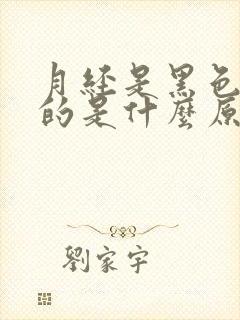 月经是黑色
的是什麼原
劉家宇